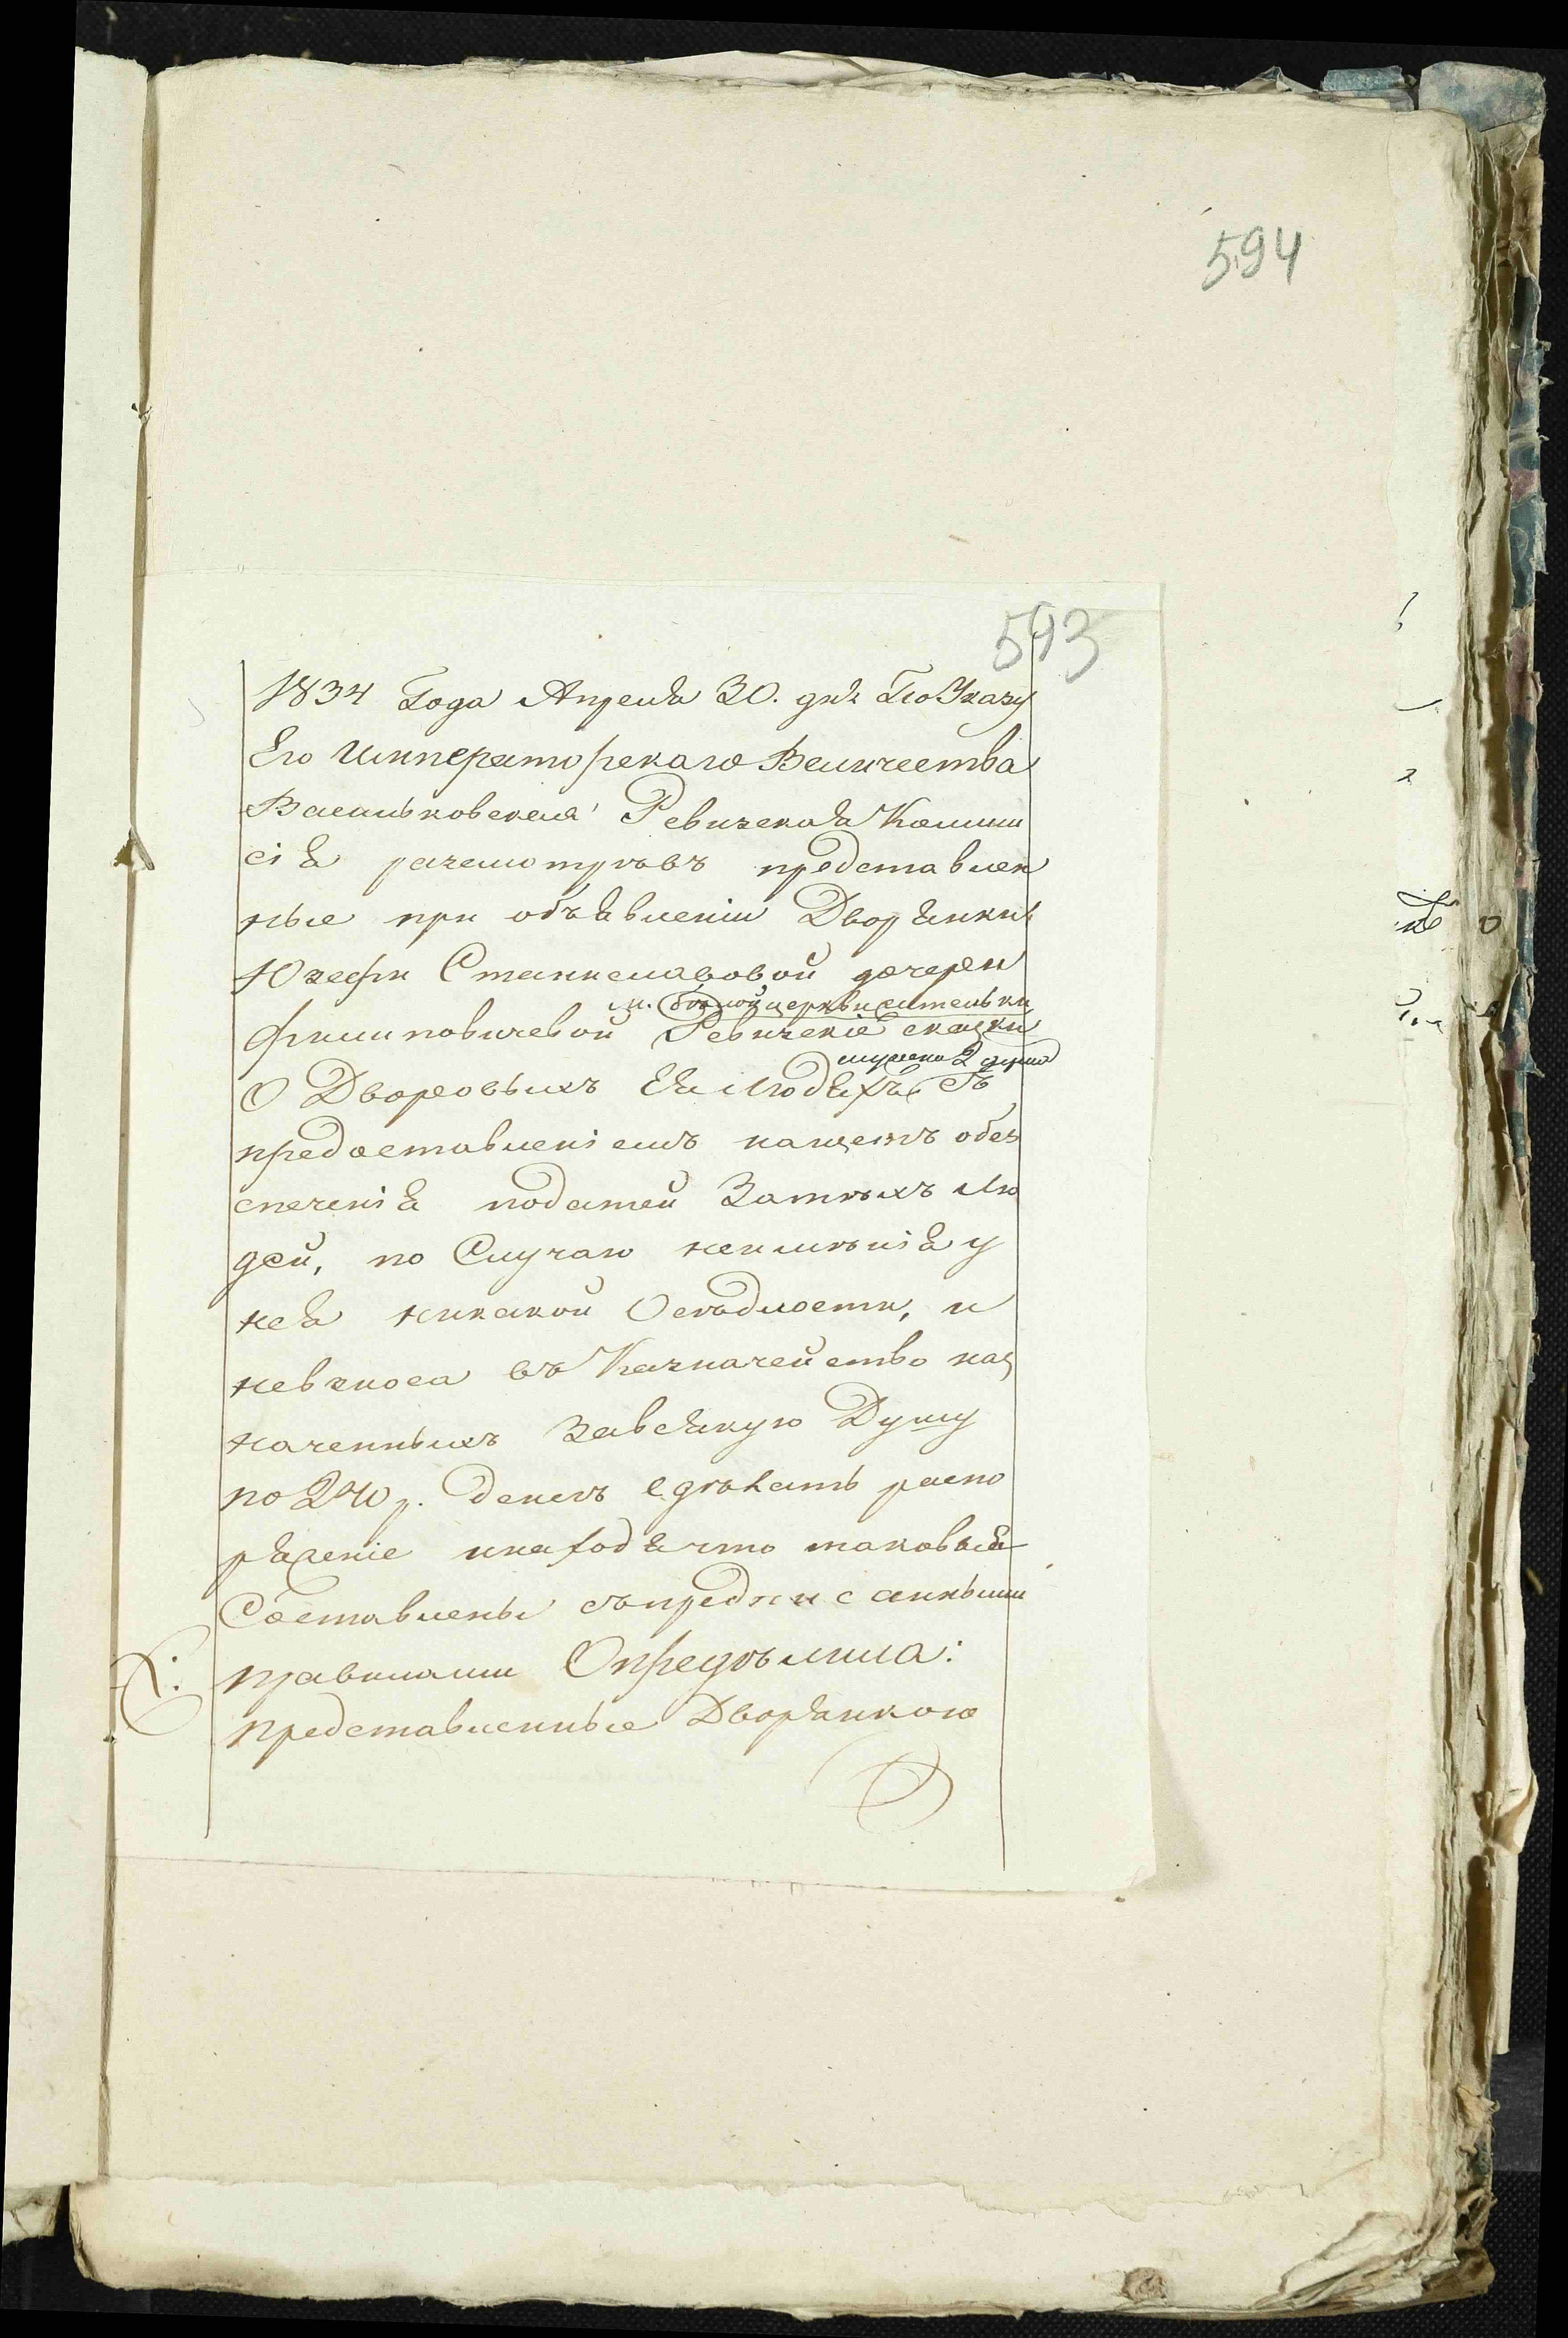 594
593
1834 Года Апреля 30. дня По Указу
Его Императорскаго Величества
Васильковская Ревизская Комми
сія разсмотрѣвъ представлен
ные при объявленіи Дворянки
Юзефи Станиславовой дочери
м. бѣлой церкви жительки
Филиповичевой Ревизскіе сказки
мужеска 2 души
О Дворовыхъ Ея Людяхъ, Съ
предоставленіемъ нащетъ обез
печенія податей Затѣхъ Лю
дей, по Случаю неимѣнія у
нея никакой Осѣдлости, и
невзноса въ Казначейство наз
наченныхъ Завсякую Душу
по 240 р. денегъ сдѣлать распо
ряженіе инаходя что таковыя
Составлены съпредписанными
правилами Опредѣлила:
представленные Дворянкою